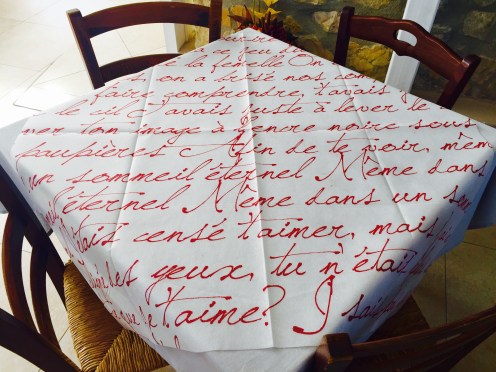 ce jeu
la femelle On
on a arosé nos
faire comprendre, t'avais
le cil C'avais juste à lever le
ver ton image à l'encre noire sous
paupières Afin de te voir, mêm
un sommeil éternel Même dans
éternel Même dans un so
étais censé t'aimer, mais
des yeux, tu n'étai
que je t'aime? J